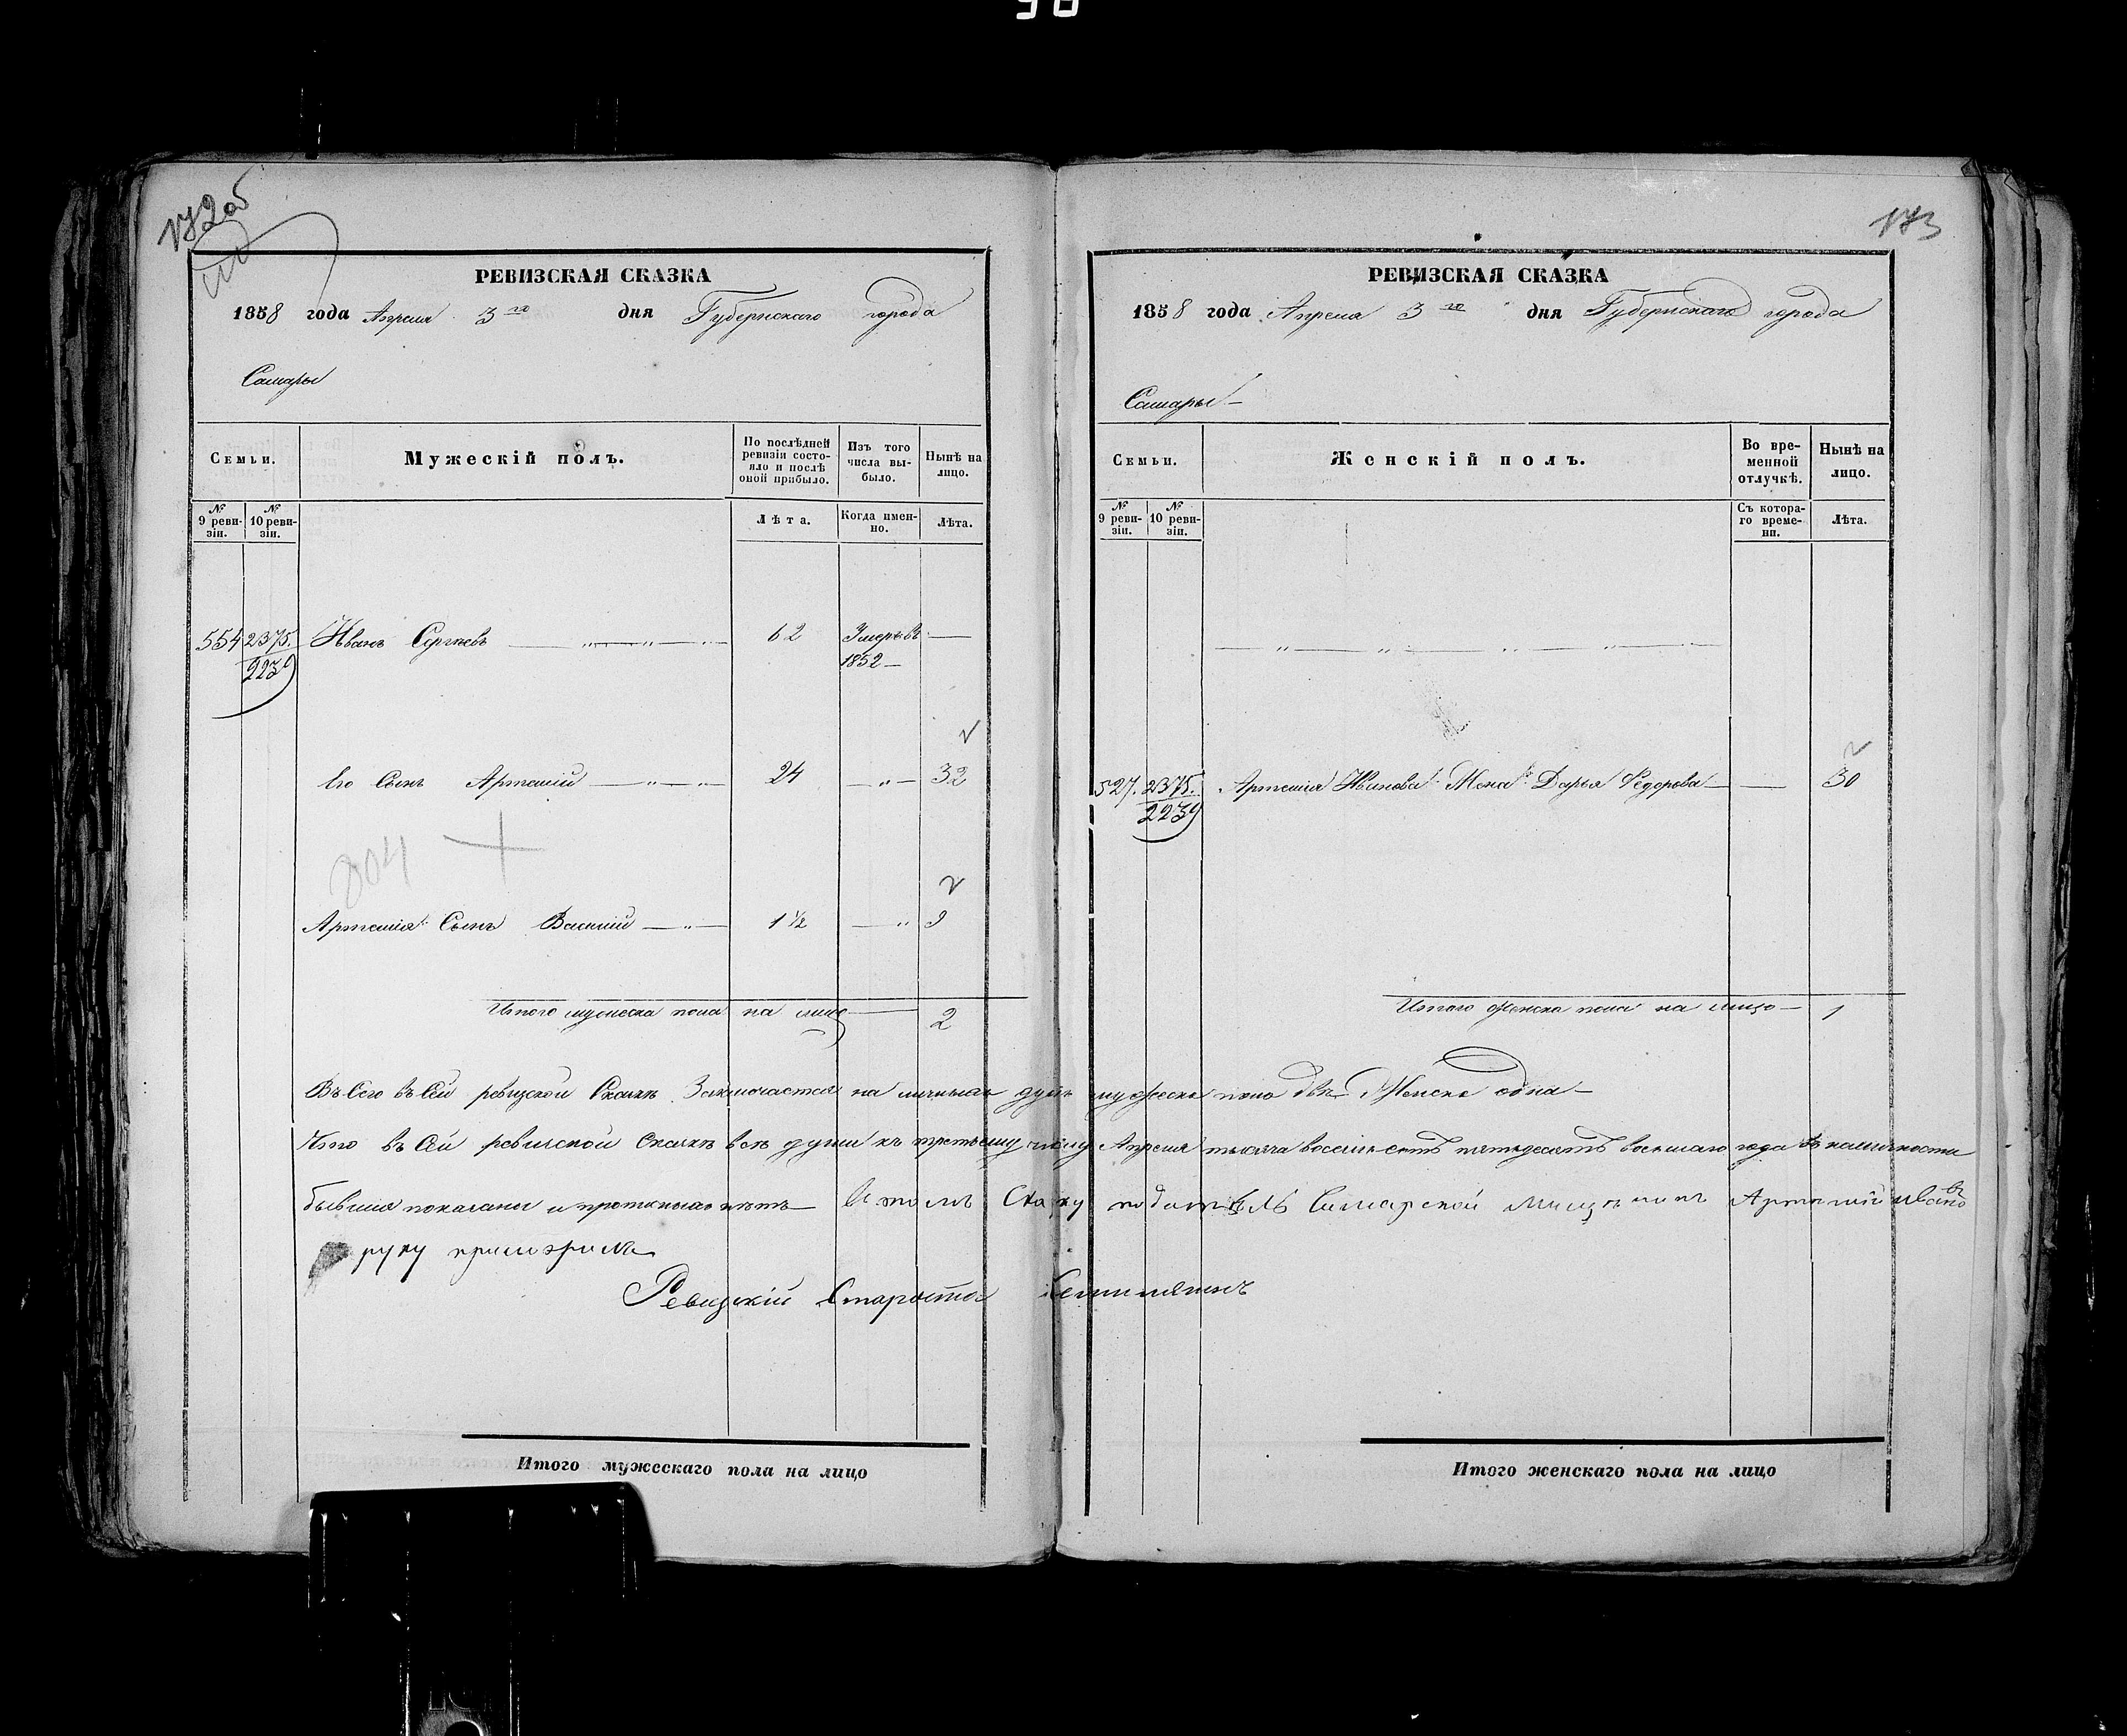 172об
РЕВИЗСКАЯ СКАЗКА
1858 года Апреля 3го дня Губернскаго города
Самары
Семьи.
Мужескій полъ.
По послѣдней ревизіи состояло и послѣ оной прибыло.
Изъ того числа выбыло.
Нынѣ на лицо.
№ 9 ревизіи.
№ 10 ревизіи.
Лѣта.
Когда именно.
Лѣта.
554 2375. Иванъ Сергѣевъ 62 Умеръ въ 1852
2239
Его Сынъ Артемій 24 32
804
Артемія Сынъ Василій 1 ½ 9
Итого мужеска пола на лицо 2
173
РЕВИЗСКАЯ СКАЗКА
1858 года Апреля 3го дня Губернскаго города
Самары
Семьи.
Женскій полъ.
Во временной отлучкѣ.
Нынѣ на лицо.
№ 9 ревизіи.
№ 10 ревизіи.
Съ котораго времени.
Лѣта.
527. 2375. Артемія Иванова Жена Дарья Ѳедорова 30
2239
Итого женска пола на лицо 1
Всего въ сей ревизской Сказкѣ Заключается на личныхъ душъ мужеска пола двѣ Женска одна
Что въ Сей ревизской Сказкѣ всѣ души къ третьему числу Апреля тысяча восемьсотъ пятьдесятъ восьмаго года въ наличности
бывшия показаны и прописныхъ нѣтъ Сказку податель Самарской Артемий Ивановъ
руку приложилъ
Ревизскій Староста
Итого мужескаго пола на лицо
Итого женскаго пола на лицо